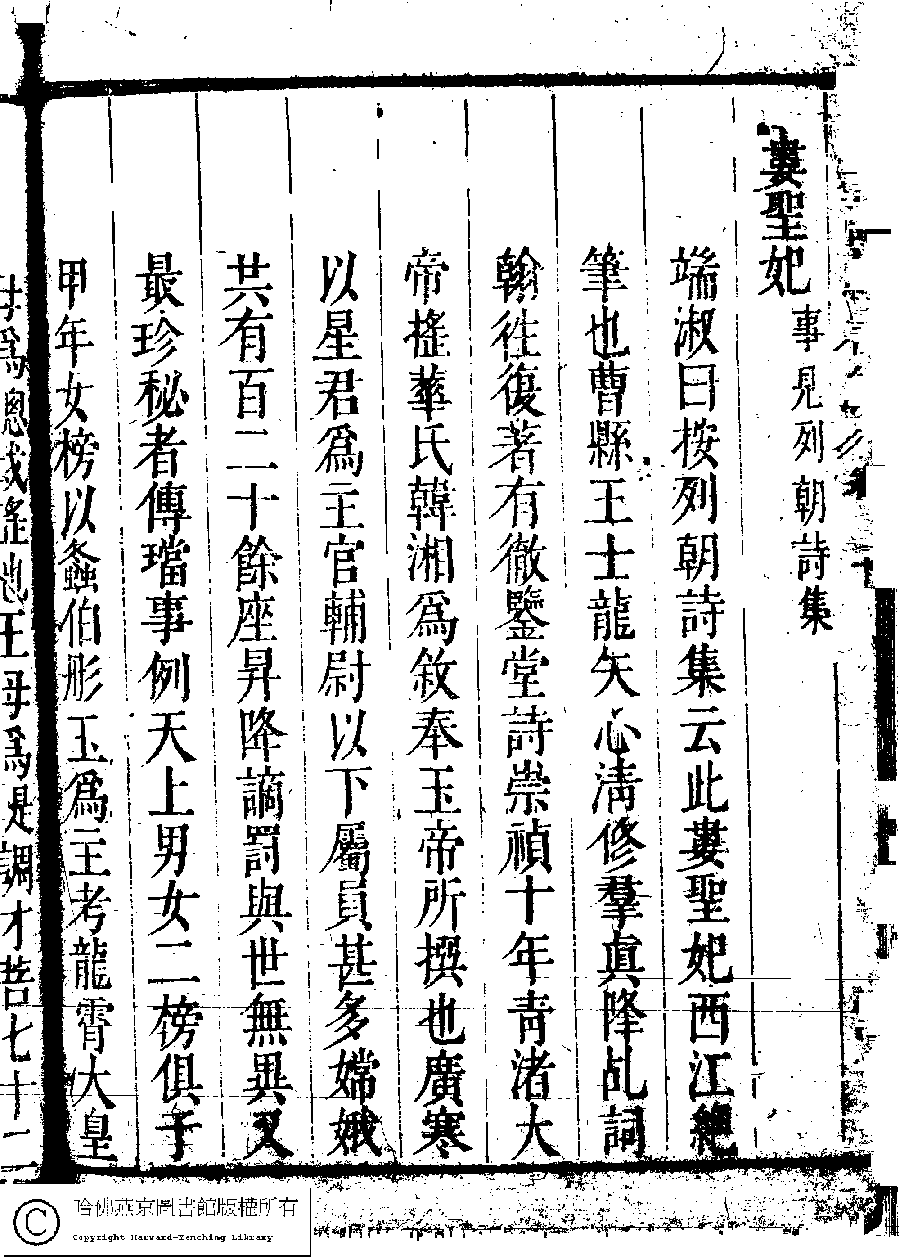 婁聖妃 事見列朝詩集
端淑曰按列朝詩集云此婁聖妃西江絕
筆也曹縣王士龍矢心清修羣真降乩詞
翰徃復著有徹鑒堂詩崇禎十年青渚大
帝搖華氏韓湘為敘奉玉帝所撰也廣寒
以星君為主官輔尉以下屬員甚多嫦娥
共有百二十餘座昇降謫罰與世無異又
最珍秘者傳璫事例天上男女二榜俱于
甲年女榜以螽伯彤玉為主考龍霄大皇
為總裁瑤池王母為是調才荅七十二
哈佛燕京圖書館版權所有
Copyright Harvard-Yenching Library